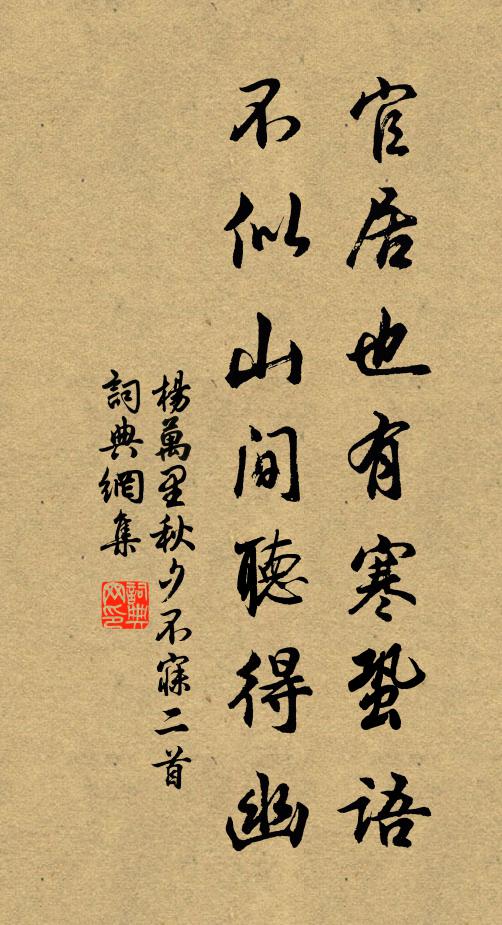 官居也有寒蛩語
不似山間聽得幽
楊萬里秋夕不寐二首
詞典網集
詞典网印